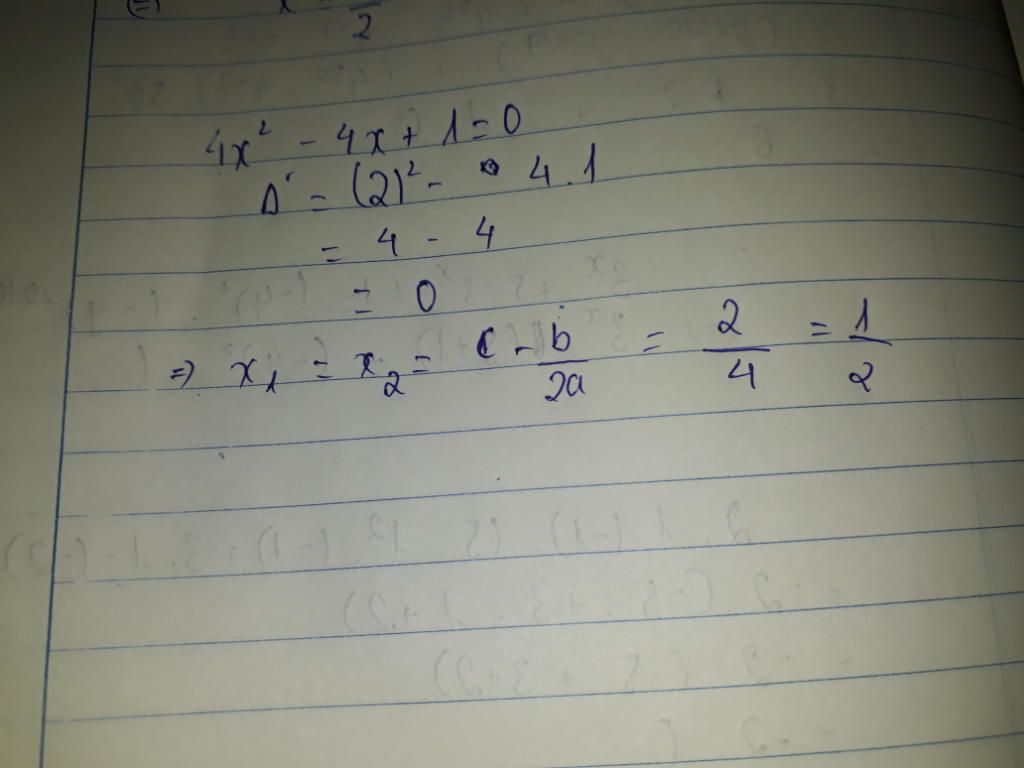 (=) x 2
4x² - 4x + 1 = 0
Δ' = (2)² - 4.1
= 4 - 4
= 0
=> x₁ = x₂ = - b/2a = 2/4 = 1/2